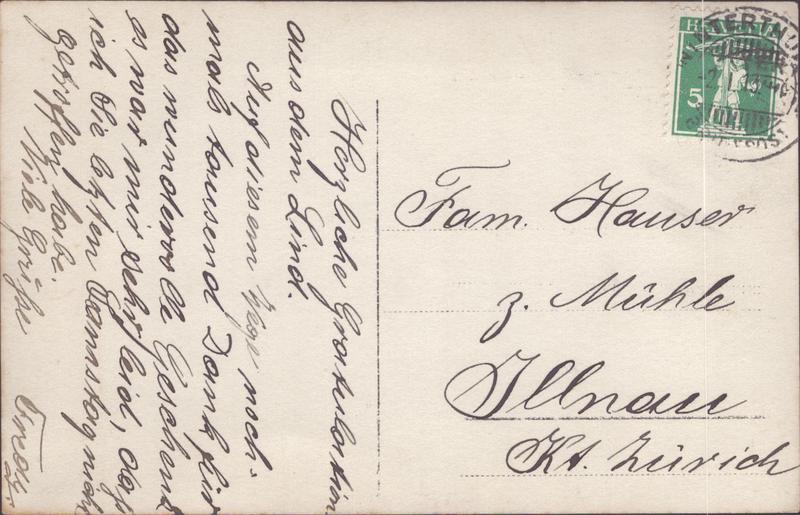 Herzliche Gratulation
aus dem Lind.
Auf diesem Wege noch-
mals tausend Dank für
das wundervolle Geschenk
es war mir sehr leid, daß
ich Sie letzten Samstag nicht
getroffen habe.
Viele Grüße
HELVETIA
5
WINTERTHUR
Fam. Hauser
z. Mühle
Illnau
Kt. Zürich